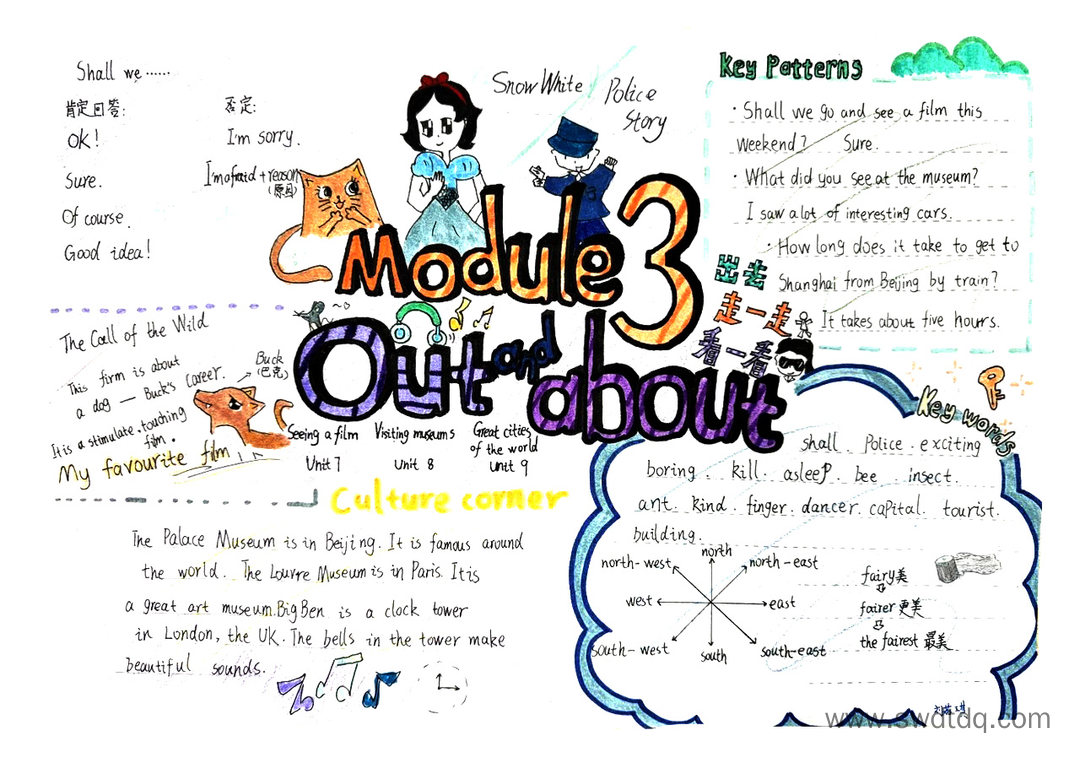 Shall we ......
肯定回答:
OK!
Sure.
Of course.
Good idea!
否定:
I'm sorry.
I'm afraid + reason
(原因)
Snow White
Police
Story
Module 3
Out and about
出去
走一走
看一看
Key Patterns
· Shall we go and see a film this
weekend? Sure.
· What did you see at the museum?
I saw a lot of interesting cars.
· How long does it take to get to
Shanghai from Beijing by train?
It takes about five hours.
The Call of the Wild
This firm is about
a dog — Buck's career.
Buck
(巴克)
It is a stimulate, touching
film.
My favourite film
Seeing a film
Unit 7
Visiting museums
Unit 8
Great cities
of the world
Unit 9
Culture corner
The Palace Museum is in Beijing. It is famous around
the world. The Louvre Museum is in Paris. It is
a great art museum. Big Ben is a clock tower
in London, the UK. The bells in the tower make
beautiful sounds.
Key words
shall. Police. exciting
boring. kill. asleep. bee insect.
ant. kind. finger. dancer. capital. tourist.
building.
north
north-west
north-east
west
east
south-west
south
south-east
fairy美
fairer更美
the fairest 最美
www.swdtdq.com